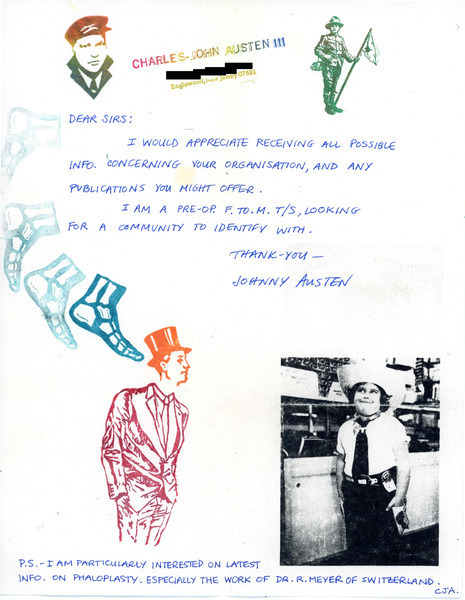 CHARLES-JOHN AUSTEN III
Englewood, New Jersey 07631
DEAR SIRS:
I WOULD APPRECIATE RECEIVING ALL POSSIBLE
INFO. CONCERNING YOUR ORGANISATION, AND ANY
PUBLICATIONS YOU MIGHT OFFER.
I AM A PRE-OP. F. TO. M. T/S, LOOKING
FOR A COMMUNITY TO IDENTIFY WITH.
THANK-YOU –
JOHNNY AUSTEN
P.S. - I AM PARTICULARLY INTERESTED ON LATEST
INFO. ON PHALOPLASTY. ESPECIALLY THE WORK OF DR. R. MEYER OF SWITZERLAND.
CJA.